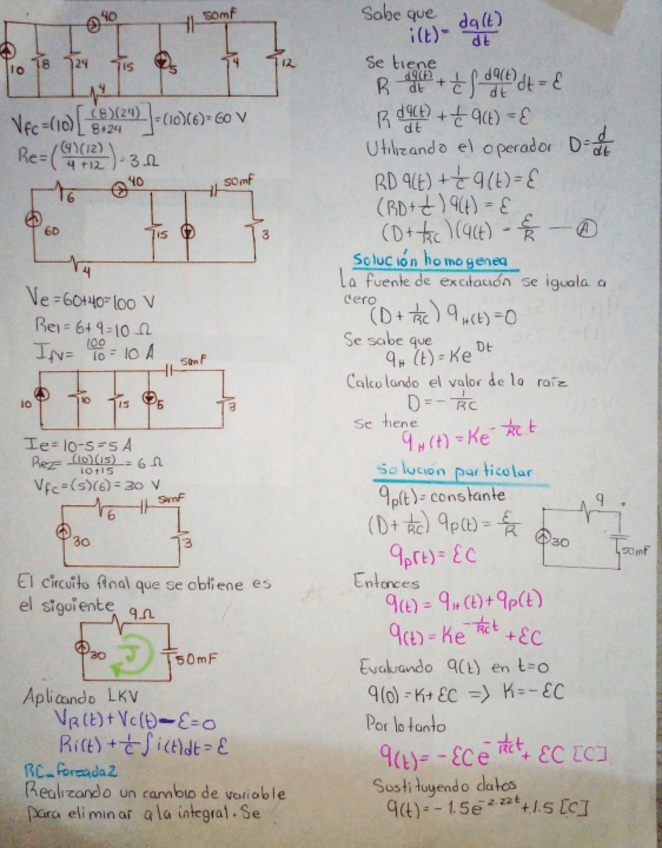 40
50mF
10
8
24
15
5
4
12
4
V_fc=(10)[(8)(24)/8+24]=(10)(6)=60 V
Re=((4)(12)/4+12)=3 Ω
40
50mF
6
60
15
3
4
Ve=60+40=100 V
Re1=6+4=10 Ω
I_N=100/10=10 A
50mF
10
10
15
5
3
Ie=10-5=5 A
Re2=(10)(15)/10+15=6 Ω
V_fc=(5)(6)=30 V
50mF
6
30
3
El circuito final que se obtiene es
el siguiente
9Ω
30
J
50mF
Aplicando LKV
V_R(t)+V_C(t)-ε=0
Ri(t)+1/C∫i(t)dt=ε
RC_Forzada2
Realizando un cambio de variable
para eliminar a la integral. Se
Sabe que
i(t)=dq(t)/dt
Se tiene
R dq(t)/dt+1/C∫dq(t)/dt dt=ε
R dq(t)/dt+1/C q(t)=ε
Utilizando el operador D=d/dt
RD q(t)+1/C q(t)=ε
(RD+1/C)q(t)=ε
(D+1/RC)(q(t)=ε/R —Ⓐ
Solución homogenea
La fuente de excitación se iguala a
cero
(D+1/RC)q_H(t)=0
Se sabe que
q_H(t)=Ke^Dt
Calculando el valor de la raíz
D=-1/RC
se tiene
q_H(t)=Ke^-1/RC t
Solución particular
q_p(t)=constante
(D+1/RC)q_p(t)=ε/R
q_p(t)=εC
9
30
50mF
Entonces
q(t)=q_H(t)+q_p(t)
q(t)=Ke^-1/RC t+εC
Evaluando q(t) en t=0
q(0)=K+εC => K=-εC
Por lo tanto
q(t)=-εCe^-1/RC t+εC [C]
Sustituyendo datos
q(t)=-1.5e^-2.22t+1.5[C]